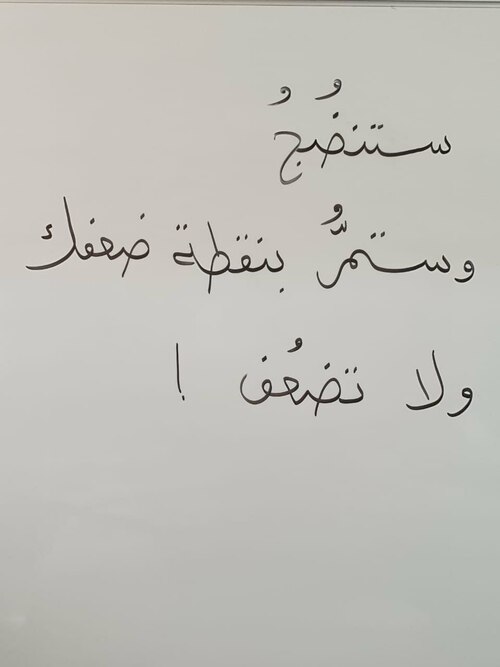 ستنضُجُ
وستمرُّ بنقطة ضعفك
ولا تضعُف !